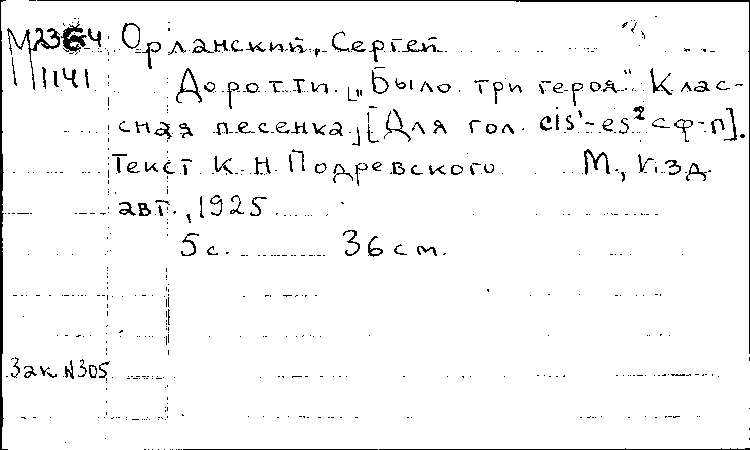 М 2364 Орланский, Сергей
1141
Доротти. „Было три героя“ Клас-
сная песенка. [Для гол. cis¹-es² с ф-п].
Текст К. Н. Подревского М., Изд.
авт., 1925
5 с. 36 см.
Зак N305